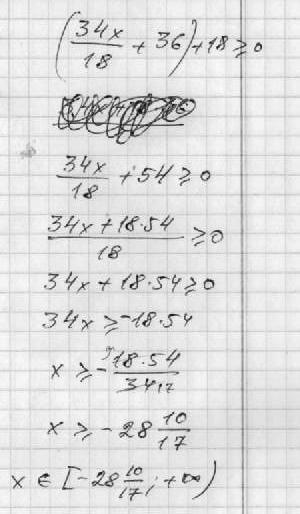 (34x/18 + 36) + 18 ≥ 0
34x/18 + 54 ≥ 0
(34x + 18·54)/18 ≥ 0
34x + 18·54 ≥ 0
34x ≥ -18·54
x ≥ - 9 18·54/34 17
x ≥ - 28 10/17
x ∈ [-28 10/17; +∞)